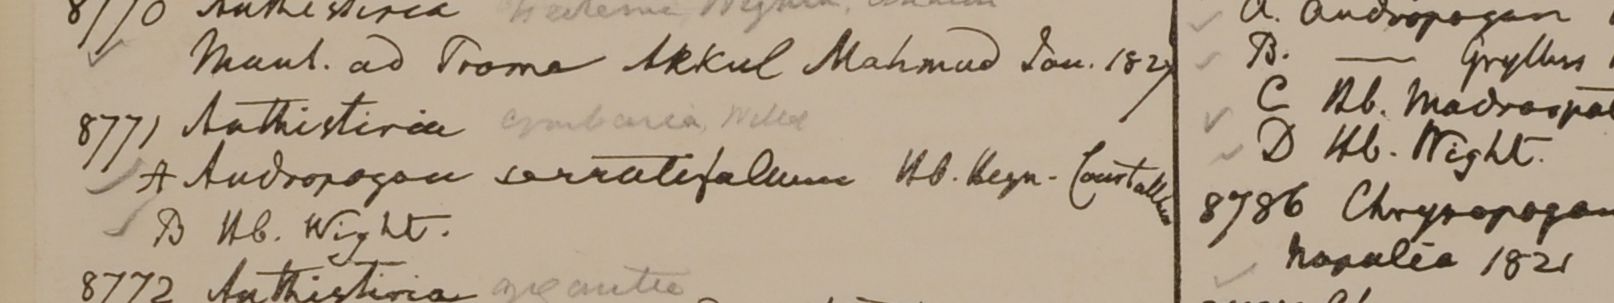 8770 Anthistiria
Mont. ad Prome Akkul Mahmud Jan. 1827
8771 Anthistiria cymbaria, Willd
A Andropogon serratifolium Hb. Heyn. Courtallum
B Hb. Wight.
8772 Anthistiria gigantea
a. Andropogon
B. — Gryllus
C Hb. Madraspat
D Hb. Wight.
8786 Chrysopogon
Napalia 1821